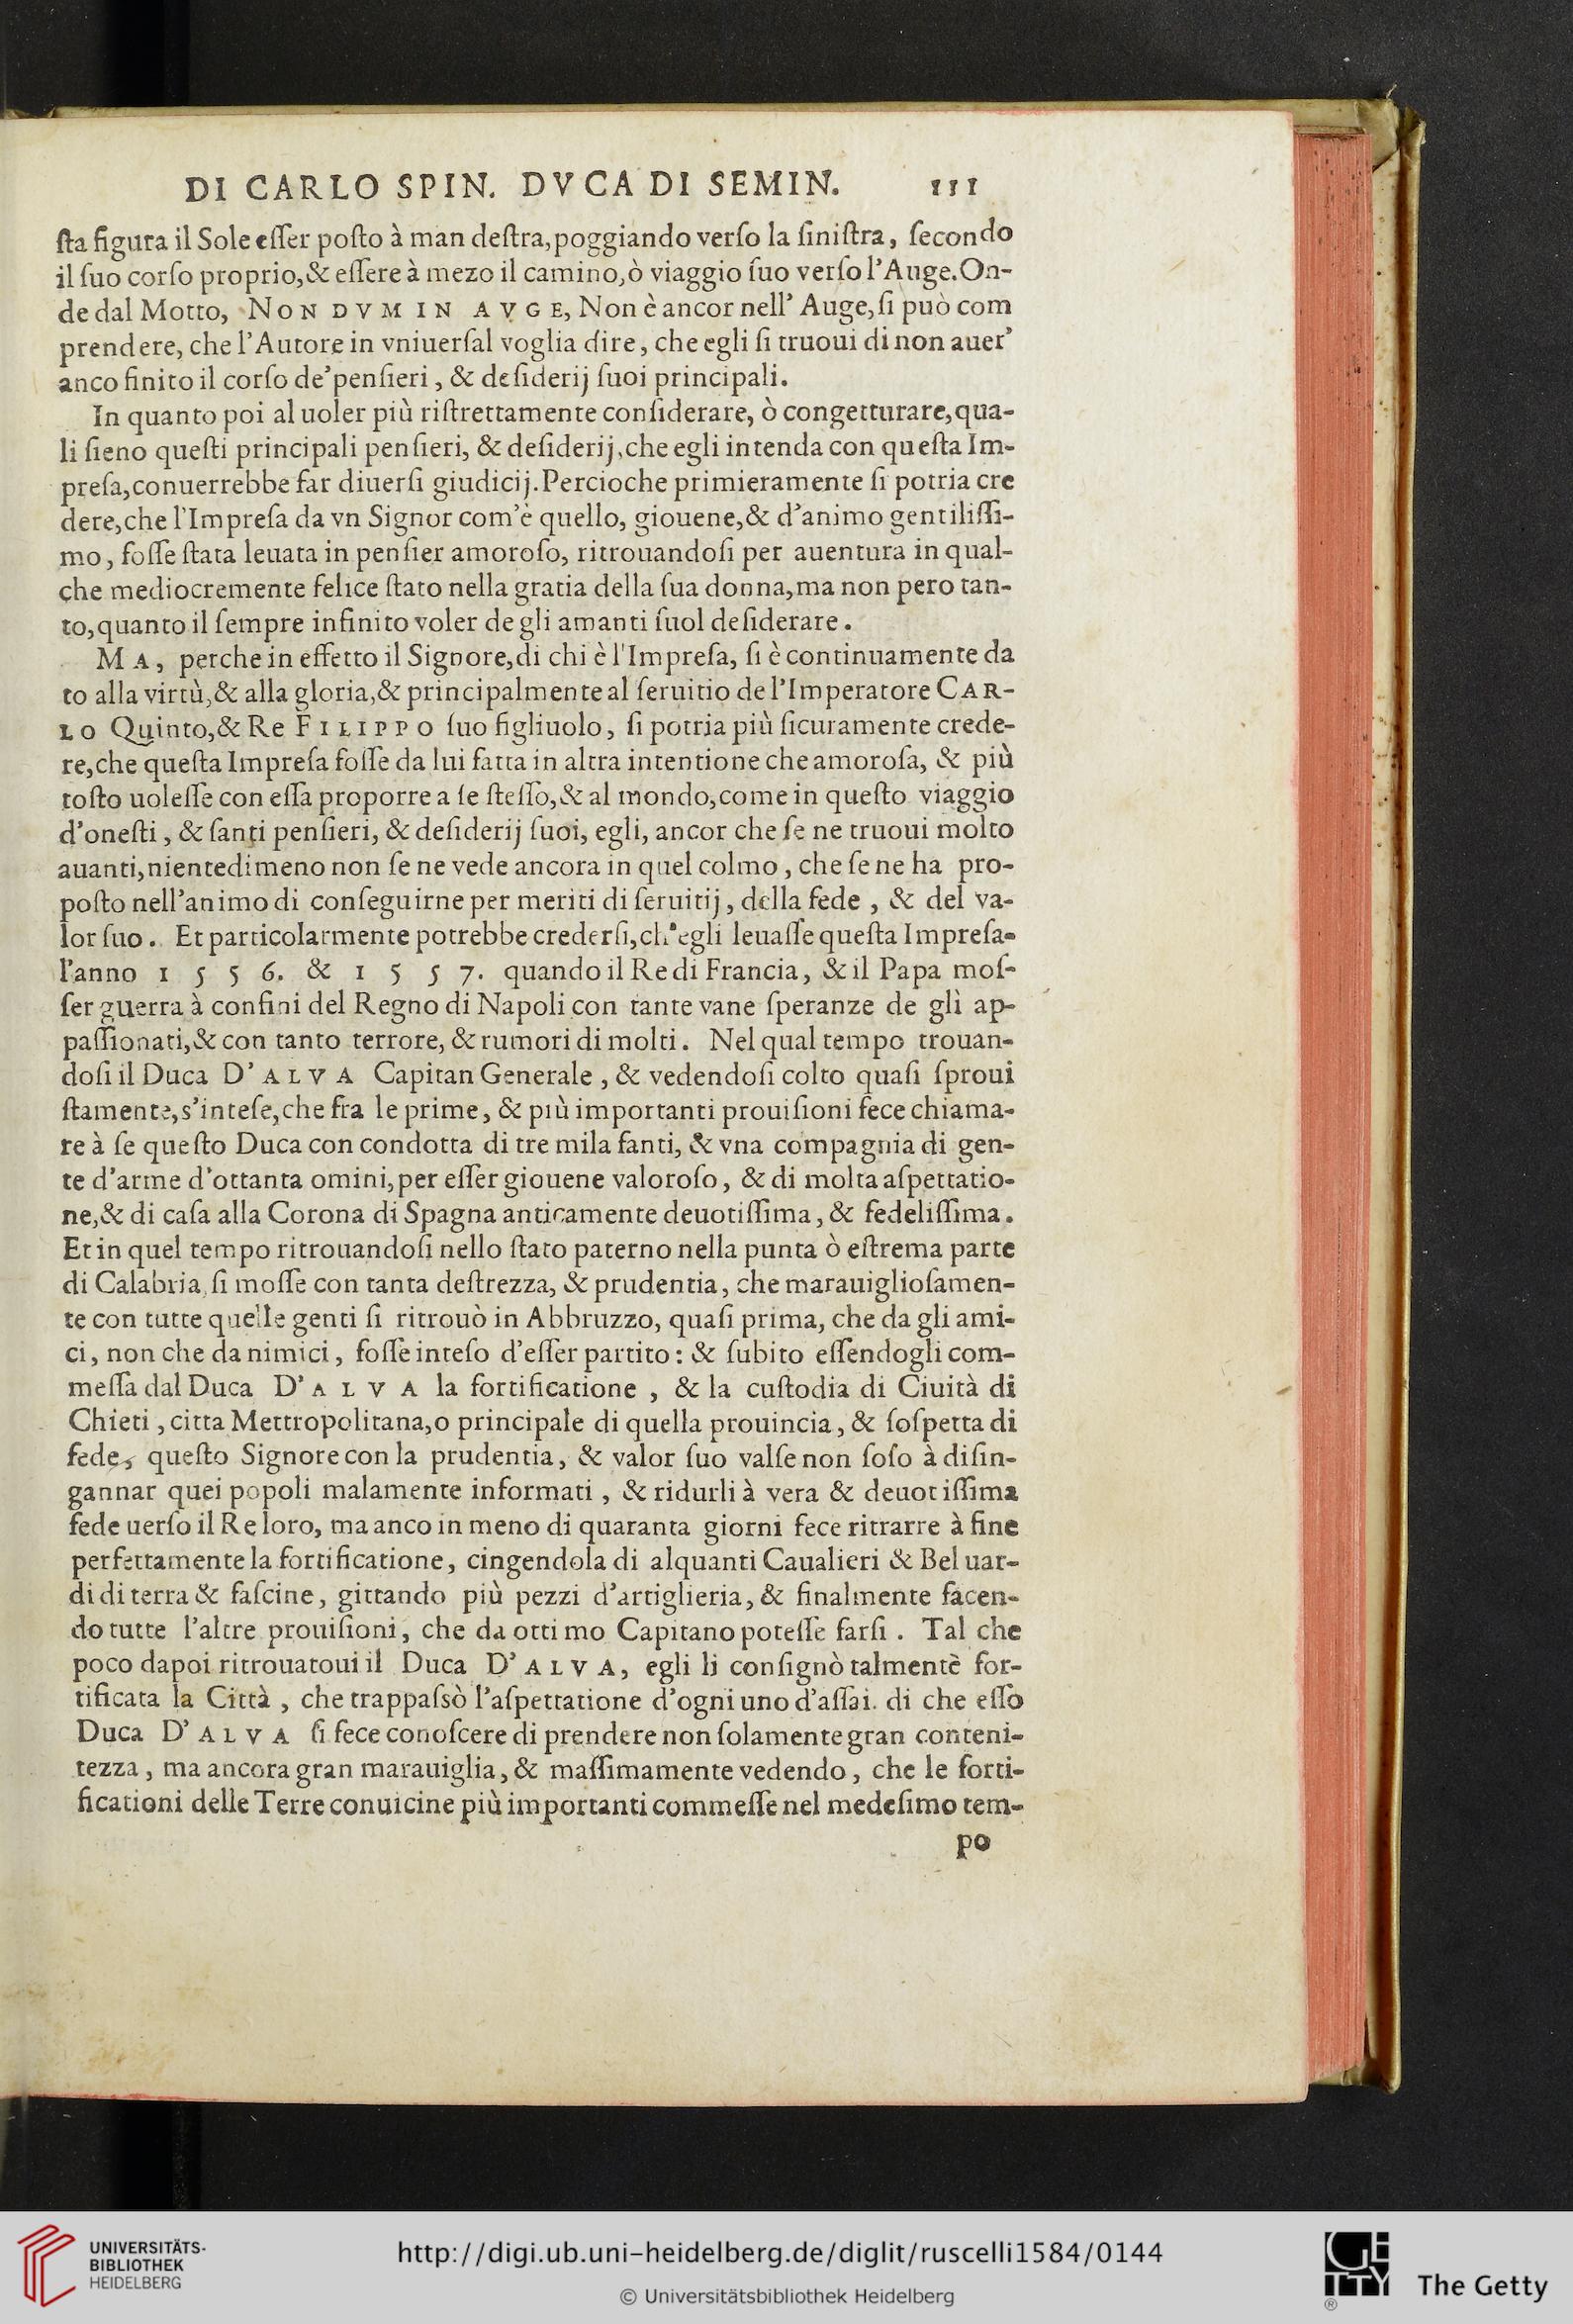 DI CARLO SPIN. DVCA DI SEMIN. 111
ſta figura il Sole eſſer poſto à man deſtra, poggiando verſo la ſiniſtra, ſecondo
il ſuo corſo proprio, & eſſere à mezo il camino, ò viaggio ſuo verſo l'Auge. On-
de dal Motto, NON DVM IN AVGE, Non è ancor nell' Auge, ſi può com
prendere, che l'Autore in vniuerſal voglia dire, che egli ſi truoui di non auer'
anco finito il corſo de'penſieri, & deſiderij ſuoi principali.
In quanto poi al uoler più riſtrettamente conſiderare, ò congetturare, qua-
li ſieno queſti principali penſieri, & deſiderij, che egli intenda con queſta Im-
preſa, conuerrebbe far diuerſi giudicij. Percioche primieramente ſi potria cre
dere, che l'Impreſa da vn Signor com'è quello, giouene, & d'animo gentiliſſi-
mo, foſſe ſtata leuata in penſier amoroſo, ritrouandoſi per auentura in qual-
che mediocremente felice ſtato nella gratia della ſua donna, ma non pero tan-
to, quanto il ſempre infinito voler de gli amanti ſuol deſiderare.
MA, perche in effetto il Signore, di chi è l'Impreſa, ſi è continuamente da
to alla virtù, & alla gloria, & principalmente al ſeruitio de l'Imperatore CAR-
LO Quinto, & Re FILIPPO ſuo figliuolo, ſi potria più ſicuramente crede-
re, che queſta Impreſa foſſe da lui fatta in altra intentione che amoroſa, & più
toſto uoleſſe con eſſa proporre a ſe ſteſſo, & al mondo, come in queſto viaggio
d'oneſti, & ſanti penſieri, & deſiderij ſuoi, egli, ancor che ſe ne truoui molto
auanti, nientedimeno non ſe ne vede ancora in quel colmo, che ſe ne ha pro-
poſto nell'animo di conſeguirne per meriti di ſeruitij, della fede, & del va-
lor ſuo. Et particolarmente potrebbe crederſi, ch'egli leuaſſe queſta Impreſa-
l'anno 1556. & 1557. quando il Re di Francia, & il Papa moſ-
ſer guerra à confini del Regno di Napoli con tante vane ſperanze de gli ap-
paſſionati, & con tanto terrore, & rumori di molti. Nel qual tempo trouan-
doſi il Duca D'ALVA Capitan Generale, & vedendoſi colto quaſi ſproui
ſtamente, s'inteſe, che fra le prime, & più importanti prouiſioni fece chiama-
re à ſe queſto Duca con condotta di tre mila fanti, & vna compagnia di gen-
te d'arme d'ottanta omini, per eſſer giouene valoroſo, & di molta aſpettatio-
ne, & di caſa alla Corona di Spagna anticamente deuotiſſima, & fedeliſſima.
Et in quel tempo ritrouandoſi nello ſtato paterno nella punta ò eſtrema parte
di Calabria, ſi moſſe con tanta deſtrezza, & prudentia, che marauiglioſamen-
te con tutte quelle genti ſi ritrouò in Abbruzzo, quaſi prima, che da gli ami-
ci, non che da nimici, foſſe inteſo d'eſſer partito: & ſubito eſſendogli com-
meſſa dal Duca D'ALVA la fortificatione, & la cuſtodia di Ciuità di
Chieti, citta Mettropolitana, o principale di quella prouincia, & ſoſpetta di
fede, queſto Signore con la prudentia, & valor ſuo valſe non ſoſo à diſin-
gannar quei popoli malamente informati, & ridurli à vera & deuotiſſima
fede uerſo il Re loro, ma anco in meno di quaranta giorni fece ritrarre à fine
perfettamente la fortificatione, cingendola di alquanti Caualieri & Beluar-
di di terra & faſcine, gittando più pezzi d'artiglieria, & finalmente facen-
do tutte l'altre prouiſioni, che da ottimo Capitano poteſſe farſi. Tal che
poco dapoi ritrouatoui il Duca D'ALVA, egli li conſignò talmentè for-
tificata la Città, che trappaſsò l'aſpettatione d'ogni uno d'aſſai. di che eſſo
Duca D'ALVA ſi fece conoſcere di prendere non ſolamente gran conteni-
tezza, ma ancora gran marauiglia, & maſſimamente vedendo, che le forti-
ficationi delle Terre conuicine più importanti commeſſe nel medeſimo tem-
po
UNIVERSITÄTS-
BIBLIOTHEK
HEIDELBERG
http://digi.ub.uni-heidelberg.de/diglit/ruscelli1584/0144
© Universitätsbibliothek Heidelberg
GETTY
®
The Getty